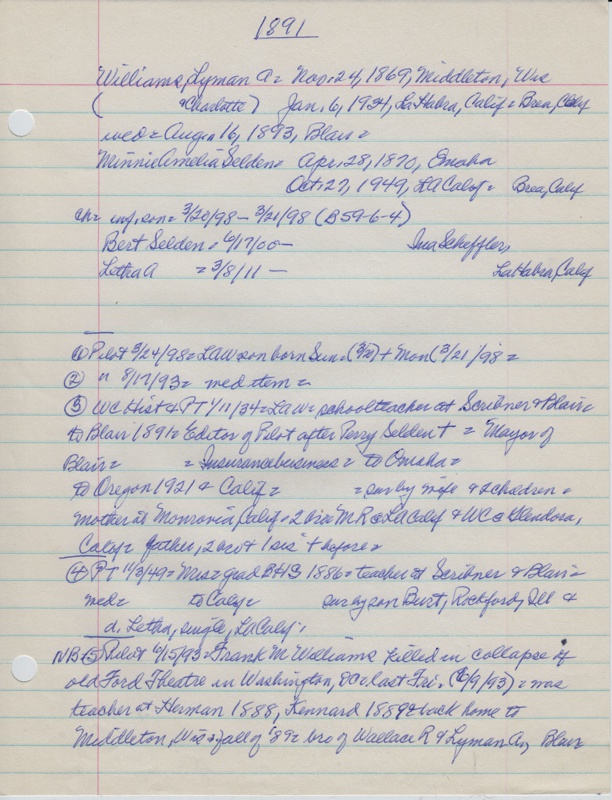 1891
Williams, Lyman A = Nov. 24, 1869, Middleton, Wis
( & Charlotte) Jan. 6, 1934, LaHabra, Calif = Brea, Calif
wed = Aug. 16, 1893, Blair =
Minnie Amelia Selden = Apr. 28, 1870, Omaha
Oct. 27, 1949, LA Calif = Brea, Calif
ch = inf. son = 3/20/98 - 3/21/98 (B59-6-4)
Bert Selden = 6/17/00 - Ina Scheffler,
Letha A = 3/8/11 - LaHabra, Calif
① Pilot 3/24/98 = LAW son born Sun = (3/20) + Mon (3/21/'98 =
② " 8/17/93 = wed item =
③ WC Hist & PT 1/11/34 = LAW = schoolteacher at Scribner & Blair
to Blair 1891 = Editor of Pilot after Perry Selden + = Mayor of
Blair = = Insurance business = to Omaha =
to Oregon 1921 & Calif = = sur by wife & 2 children =
mother at Monrovia, Calif = 2 bro = MR @ LA Calif & WC @ Glendora,
Calif = father, 2 bro & 1 sis + before =
④ PT 11/3/49 = Mrs = grad BHS 1886 = teacher at Scribner & Blair =
wed = to Calif = sur by son Burt, Rockford, Ill &
d. Letha, single, LA Calif;
NB ⑤ Pilot 6/15/93 = Frank M Williams killed in collapse of
old Ford Theatre in Washington, DC = last Fri. (6/9/93) = was
teacher at Herman 1888, Kennard 1889 & back home to
Middleton, Wis = fall of '89 = bro of Wallace R & Lyman A, Blair